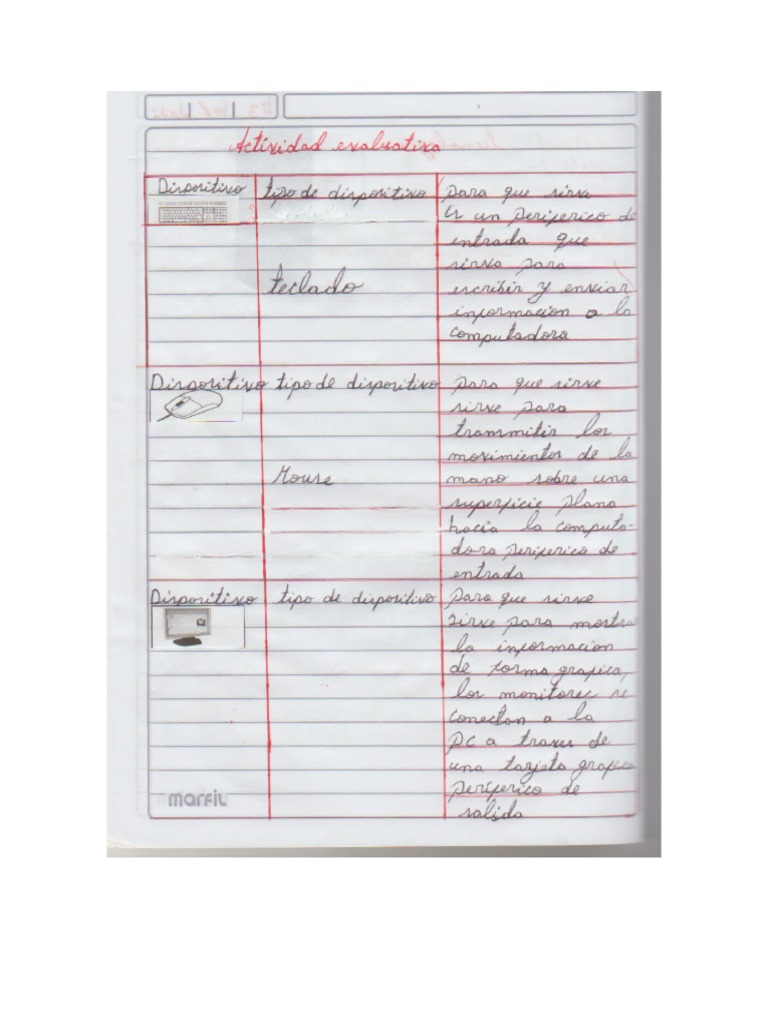 Actividad evaluativa
Dispositivo
tipo de dispositivo
para que sirve
Es un periferico de
entrada que
sirva para
teclado
escribir y enviar
informacion a la
computadora
Dispositivo
tipo de dispositivo
para que sirve
sirve para
transmitir los
movimientos de la
Mouse
mano sobre una
superficie plana
hacia la computa-
dora periferico de
entrada
Dispositivo
tipo de dispositivo
para que sirve
sirve para mostrar
la informacion
de forma grafica,
los monitores se
conectan a la
PC a traves de
una tarjeta grafica
periferico de
salida
marfil